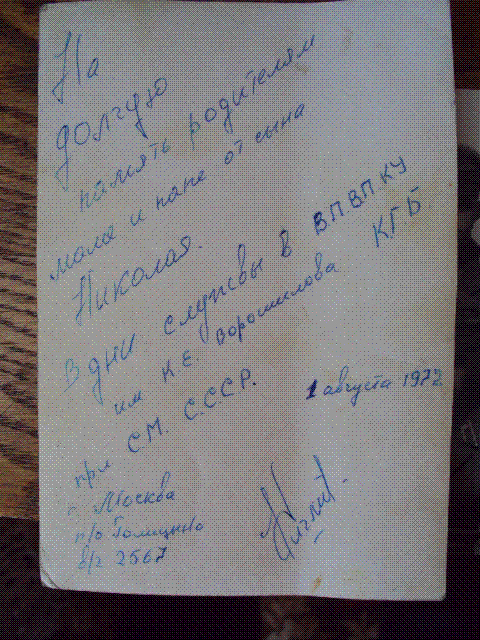 На
долгую
память родителям
маме и папе от сына
Николая.
В дни службы в ВПВПКУ
им К Е. Ворошилова КГБ
при С.М. С.С.С.Р.
1 августа 1972
г. Москва
п/о Голицино
в/ч 2567